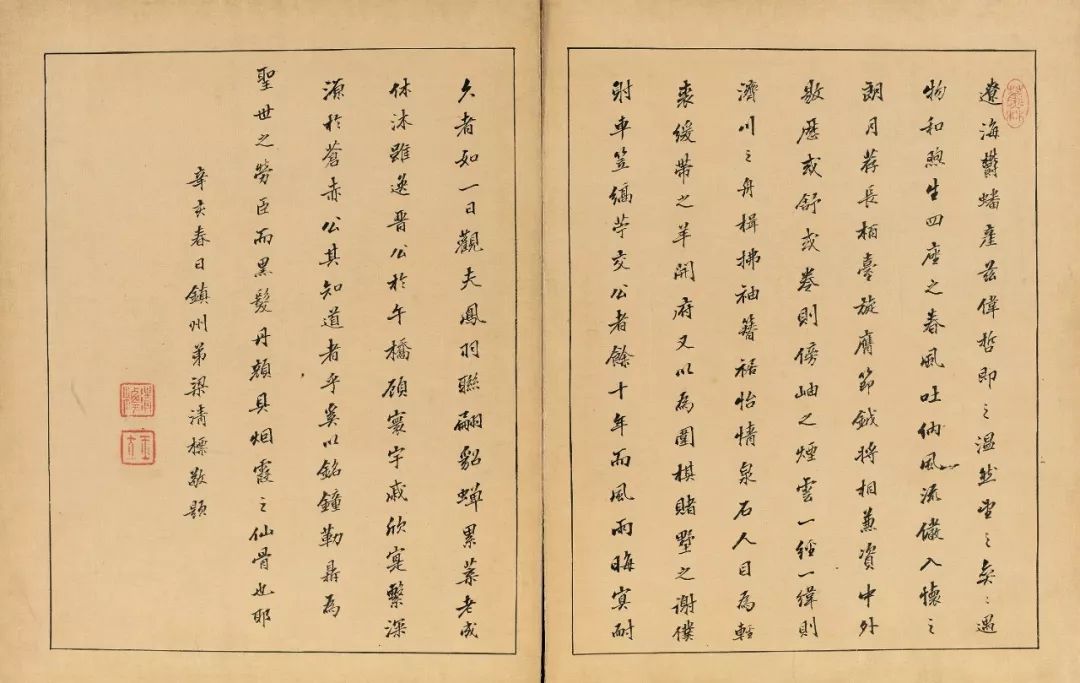 遼海欝蟠產茲偉哲即之溫然望之奕〻遇
物和煦生四座之春風吐納風流儼入懷之
朗月荐長柏臺旋膺節鉞將相兼資中外
敭歷或舒或卷則傍岫之煙雲一經一緯則
濟川之舟楫拂袖簪裾怡情泉石人目為輕
裘緩帶之羊開府又以為圍棋賭墅之謝僕
射車笠縞苧交公者餘十年而風雨晦冥耐
久者如一日觀夫鳳羽聯翩貂蟬累葉老成
休沐雖逸晉公於午橋顧寰宇戚欣寔繫深
源於蒼赤公其知道者乎奚以銘鐘勒鼎為
聖世之勞臣而黑髮丹顏具烟霞之仙骨也耶
辛亥春日鎮州弟梁清標敬題